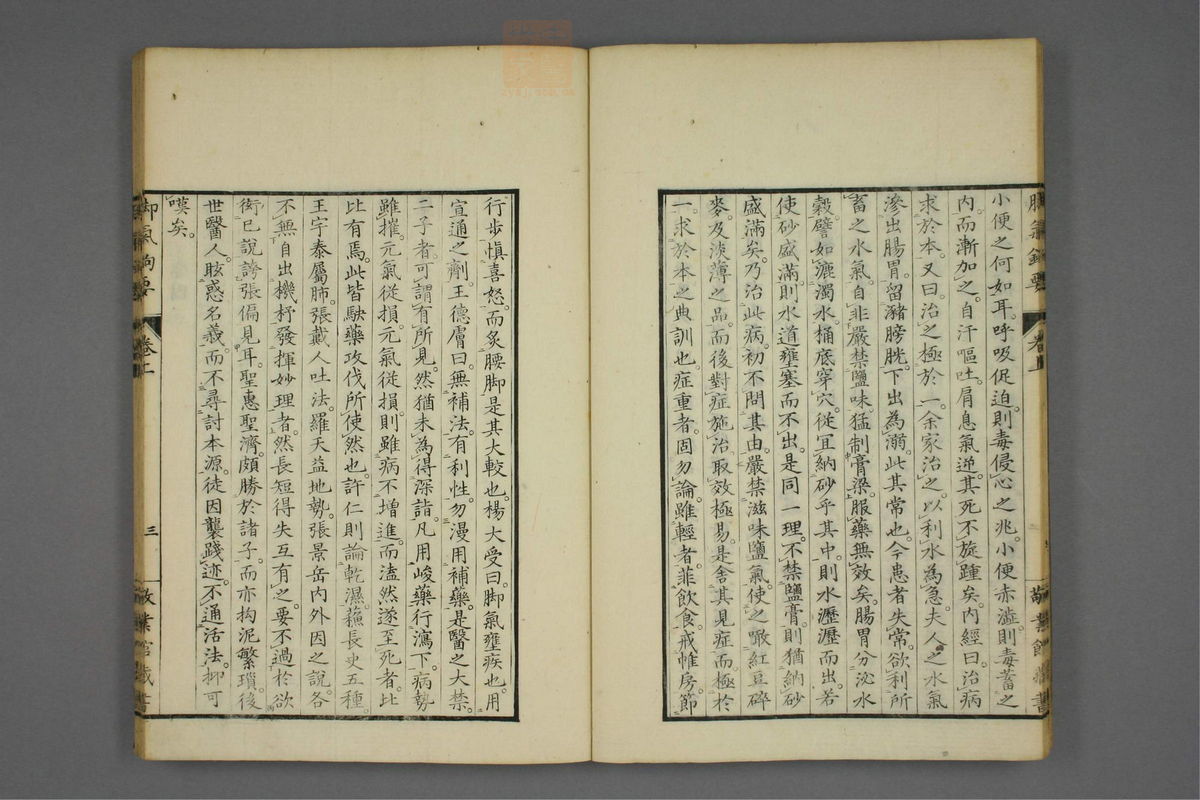 小便之何如耳。呼吸促迫。則毒侵心之兆。小便赤澁。則毒蓄之
内。而漸加之。自汗嘔吐。肩息氣逆。其死不旋踵矣。内經曰。治病
求於本。又曰。治之極於一。余家治之。以利水為急。夫人之水氣
滲出腸胃。留豬膀胱。下出為溺。此其常也。今患者失常。欲利所
畜之水氣。自非嚴禁鹽味。猛制膏梁。服藥無效矣。腸胃分泌水
穀。譬如漉濁水桶底穿穴。從宜納砂乎其中。則水瀝瀝而出。若
使砂盛滿。則水道壅塞而不出。是同一理。不禁鹽膏。則猶納砂
盛滿矣。乃治此病。初不問其由。嚴禁滋味鹽氣。使之噉紅豆碎
麥。及淡薄之品。而後對症施治。取效極易。是舍其見症。而極於
一。求於本之典訓也。症重者。固勿論。雖輕者。菲飲食。戒帷房。節
行步。慎喜怒。而灸腰脚。是其大較也。楊大受曰。脚氣壅疾也。用
宣通之劑。王德膚曰。無補法。有利性。勿漫用補藥。是醫之大禁。
二子者。可謂有所見。然猶未為得深詣。凡用峻藥行瀉下。病勢
雖摧。元氣從損。元氣從損。則雖病不增進。而溘然遂至死者。比
比有焉。此皆駃藥攻伐所使然也。許仁則論乾濕。蘓長史五種。
王宇泰屬肺。張戴人吐法。羅天益地勢。張景岳内外因之說。各
不無自出機杼發揮妙理者。然長短得失互有之。要不過於欲
衒己說。誇張偏見耳。聖惠聖濟。頗勝於諸子。而亦拘泥繁瑣。後
世醫人。眩惑名義。而不尋討本源。徒因襲踐迹。不通活法。抑可
嘆矣。
卷上
三